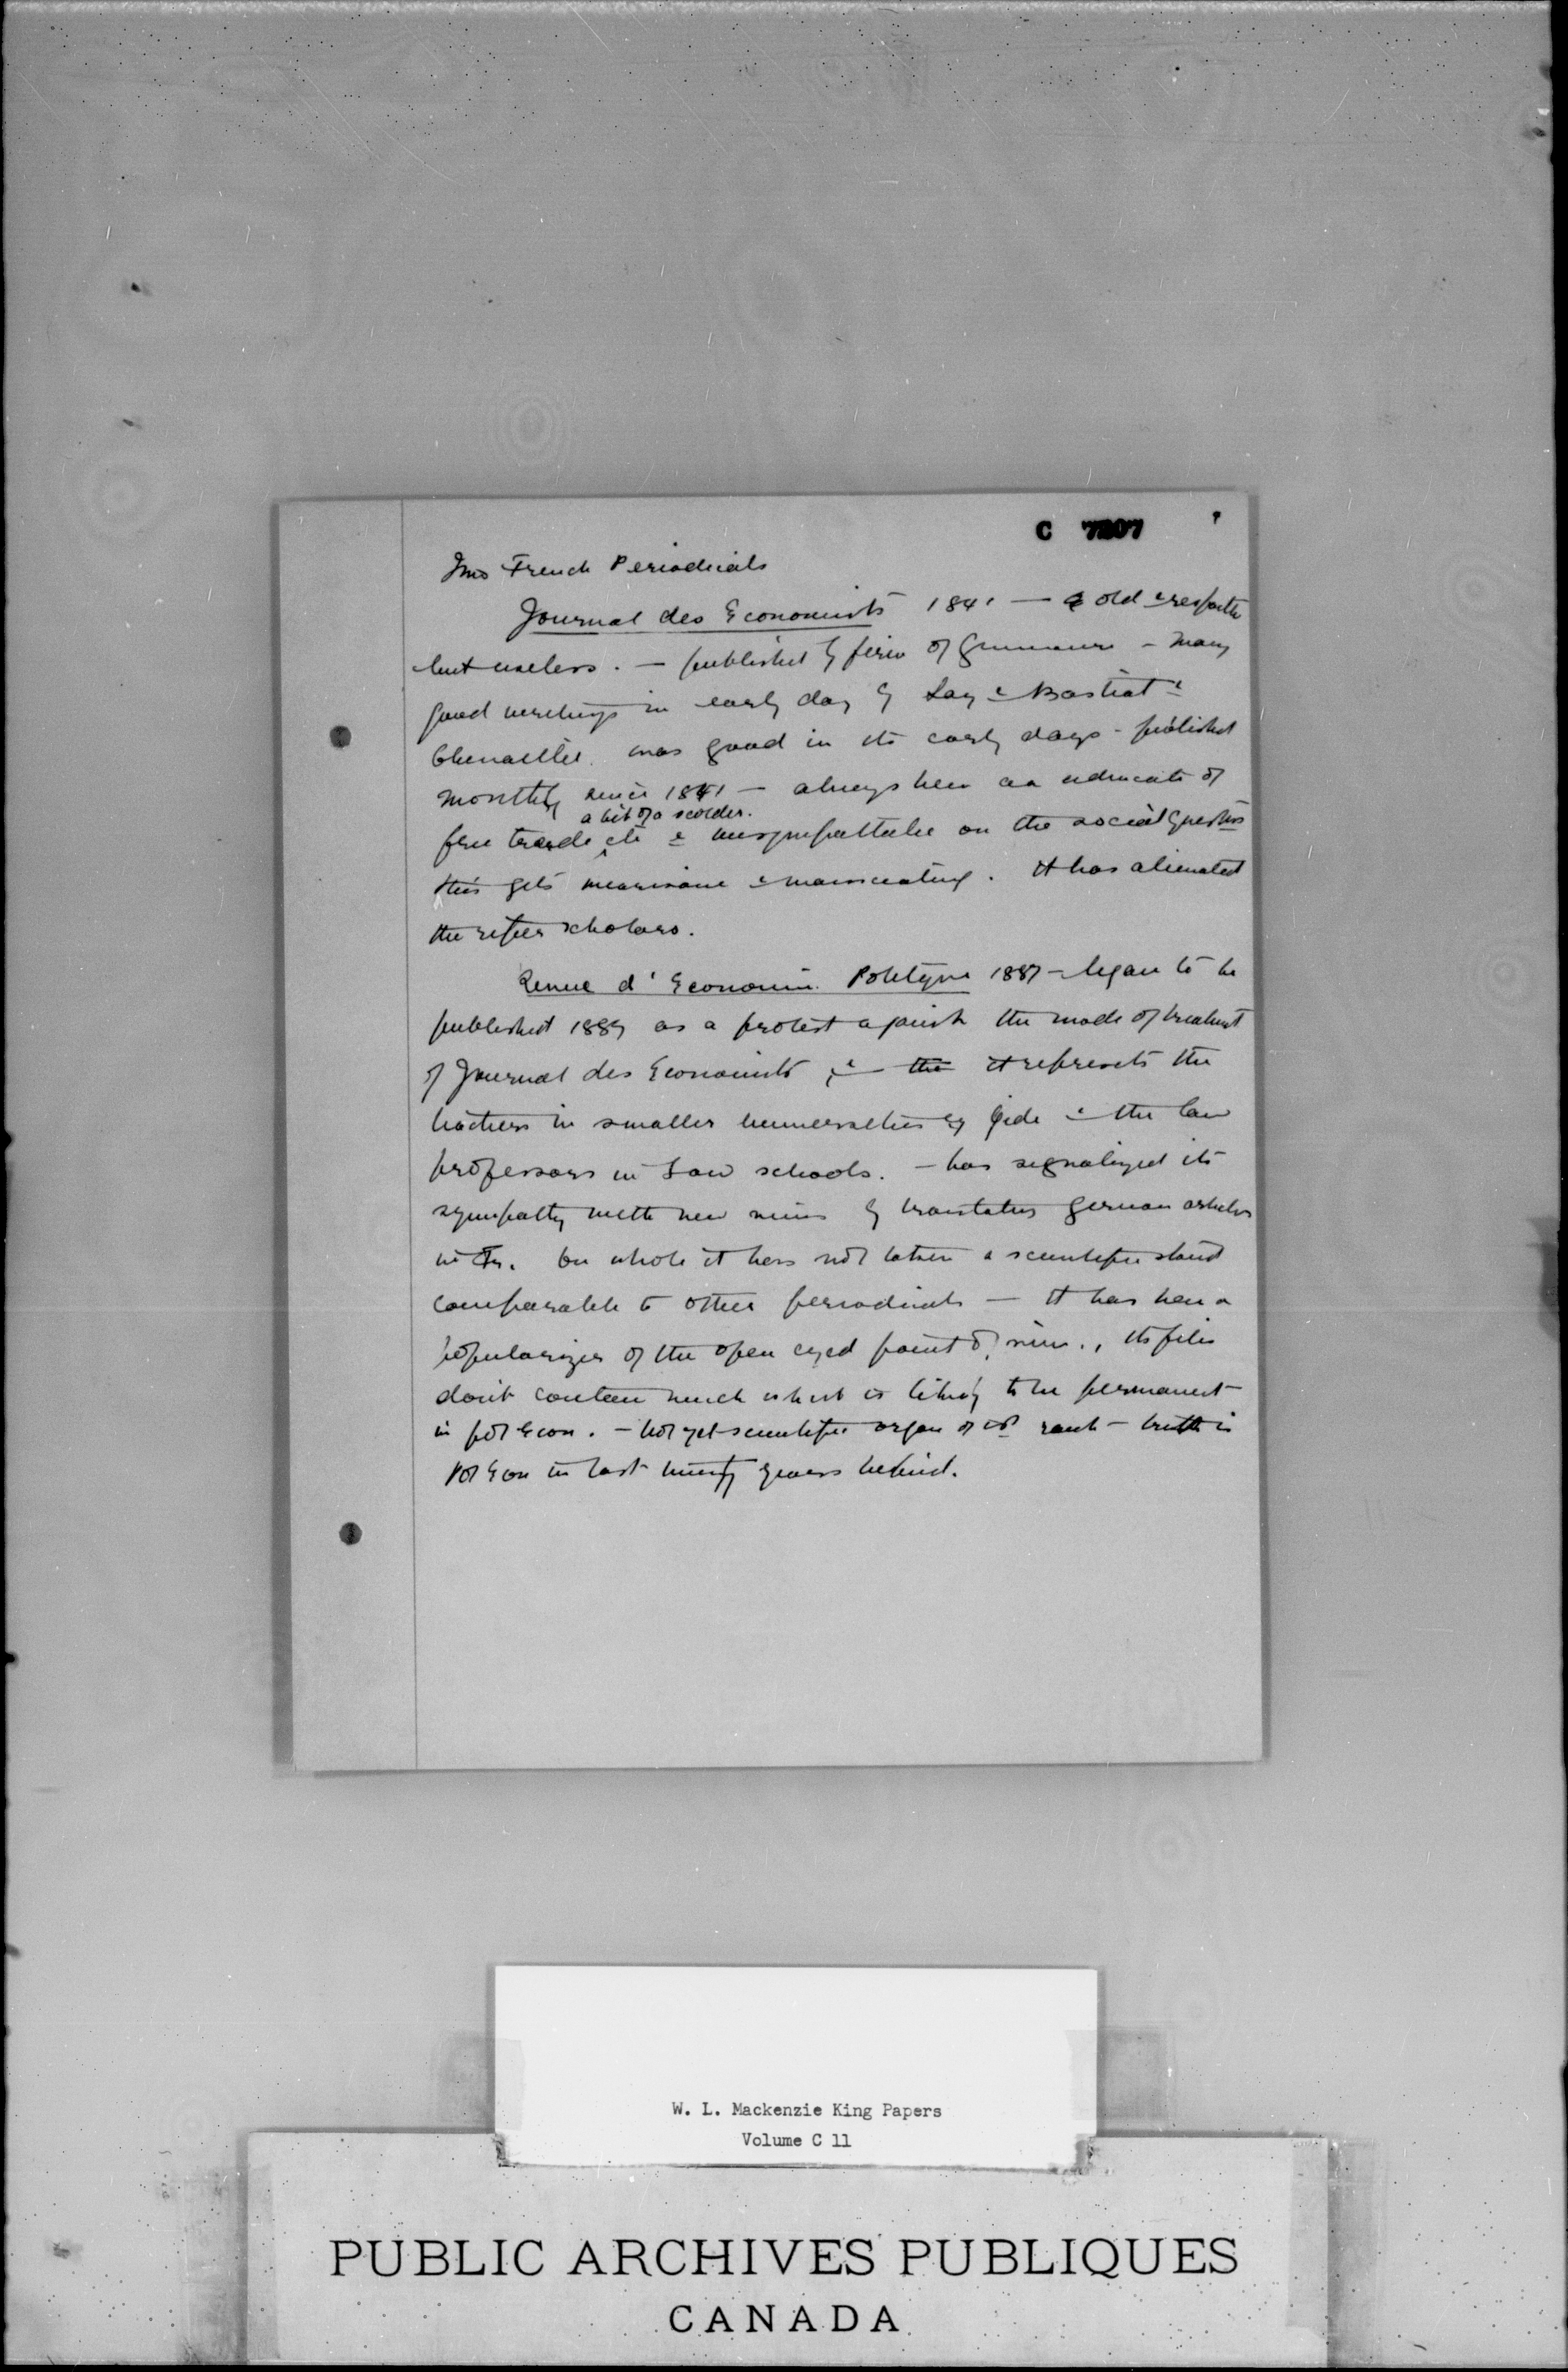 C 7207
Two French Periodicals
Journal des Economists 1841 — old & respectable
but useless. — published by firm of – many
good writings in early day by Say & Bastiat &
Chevallier. was good in its early days – published
monthly since 1841 — always been an advocate of
a bit of a scolder.
free trade etc & unsympathetic on the social questions
this gets wearisome & . It has alienated
the riper scholars.
Revue d'Economie Politique 1887 – began to be
published 1887 as a protest against the mode of treatment
of Journal des Economists, & the it represents the
teachers in smaller universities eg Gide & the law
professors in Law schools. — has signalized its
sympathy with new views by translating german articles
in Fr. On whole it has not taken a scientific stand
comparable to other periodicals — It has been a
popularizer of the open eyed point of view., its files
don't contain much which is likely to be permanent
in pol Econ. — Not yet scientific organ of 1st rank – truth is
Pol Econ in last twenty years behind.
W. L. Mackenzie King Papers
Volume C 11
PUBLIC ARCHIVES PUBLIQUES
CANADA